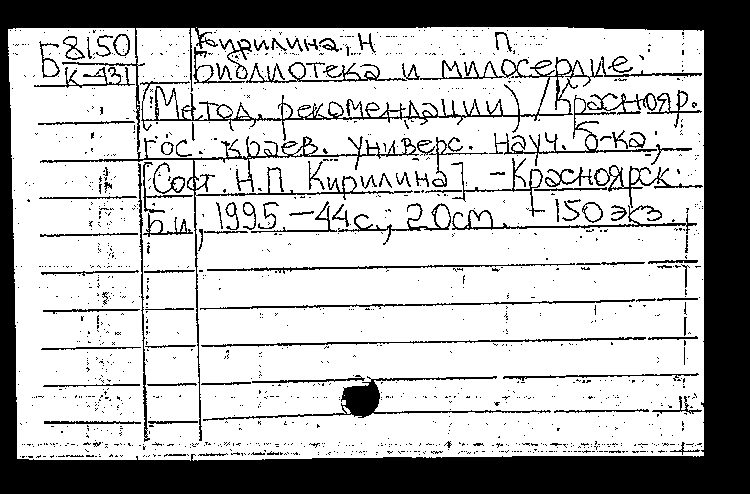 Б 8150
К-431
Кирилина, Н П
Библиотека и милосердие:
(Метод. рекомендации) / Краснояр.
гос. краев. универс. науч. б-ка;
[Сост. Н.П. Кирилина]. - Красноярск:
Б.и., 1995. - 44 с.; 20 см. - 150 экз.